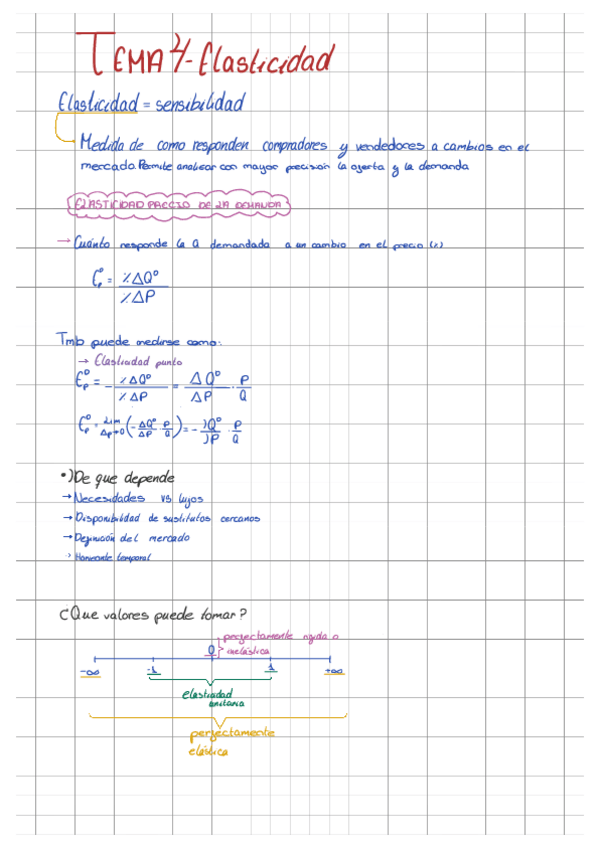 TEMA 4-Elasticidad
Elasticidad = sensibilidad
Medida de como responden compradores y vendedores a cambios en el
mercado. Permite analizar con mayor precisión la oferta y la demanda
ELASTICIDAD PRECIO DE LA DEMANDA
→ Cuánto responde la Q demandada a un cambio en el precio
Eᴰₚ = %ΔQᴰ / %ΔP
Tmb puede medirse como:
→ Elasticidad punto
Eᴰₚ = - %ΔQᴰ / %ΔP = ΔQᴰ / ΔP · P / Q
Eᴰₚ = lim Δp→0 (- ΔQᴰ / ΔP · P / Q) = - ∂Qᴰ / ∂P · P / Q
•) De que depende
→ Necesidades vs lujos
→ Disponibilidad de sustitutos cercanos
→ Definición del mercado
> Horizonte temporal
¿Que valores puede tomar?
perfectamente rígida o
0 inelástica
-∞ -1 1 +∞
elasticidad
unitaria
perfectamente
elástica